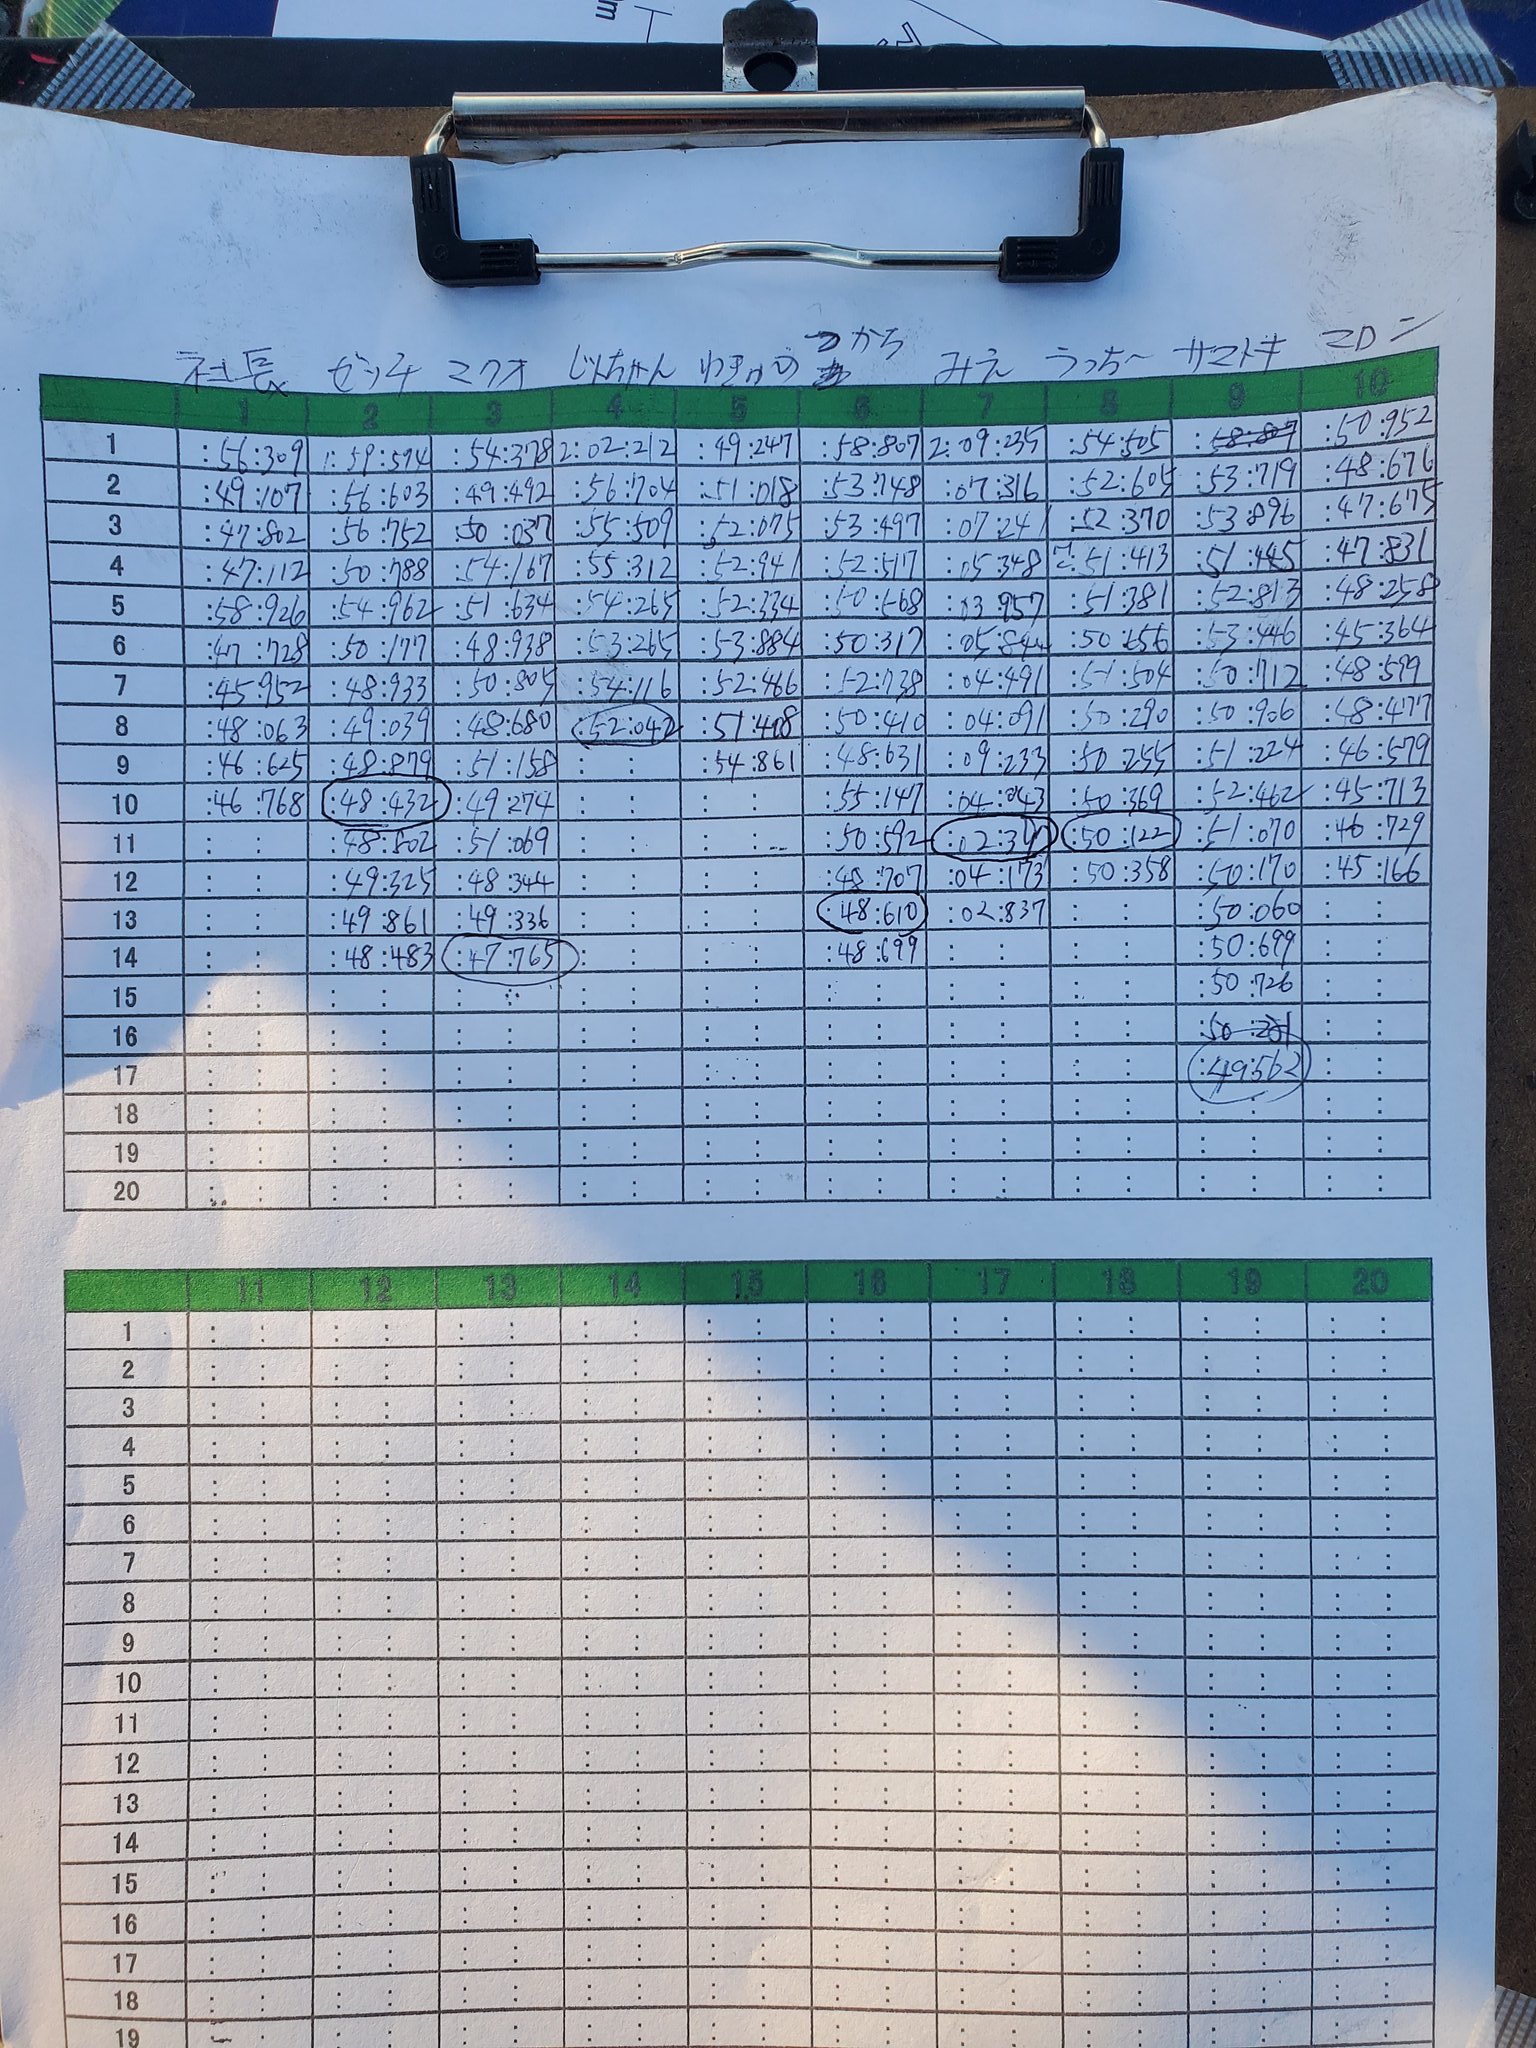 m
社長 ゼッチ ミクオ じんちゃん つかち みえ うっちー サマトキ マロン
1 2 3 4 5 6 7 8 9 10
1 :56:309 1:59:574 :54:378 2:02:212 :49:247 :58:807 2:09:235 :54:505 :50:952
2 :49:107 :56:603 :49:492 :56:704 :51:018 :53:748 :07:316 :52:605 :53:719 :48:676
3 :47:802 :56:752 :50:037 :55:509 :52:075 :53:497 :07:241 :52:370 :53:896 :47:675
4 :47:112 :50:788 :54:167 :55:312 :52:941 :52:517 :05:348 :51:413 :51:445 :47:831
5 :58:926 :54:962 :51:634 :54:265 :52:334 :50:568 :03:957 :51:381 :52:813 :48:258
6 :47:728 :50:177 :48:938 :53:265 :53:884 :50:317 :05:844 :50:656 :53:446 :45:364
7 :45:952 :48:933 :50:805 :54:116 :52:466 :52:738 :04:491 :51:504 :50:712 :48:599
8 :48:063 :49:039 :48:680 :52:042 :51:408 :50:410 :04:091 :50:290 :50:906 :48:477
9 :46:625 :48:879 :51:158 : : :54:861 :48:631 :09:233 :50:255 :51:224 :46:579
10 :46:768 :48:432 :49:274 : : : : :55:147 :04:043 :50:369 :52:462 :45:713
11 : : :48:802 :51:069 : : : : :50:592 :50:122 :51:070 :46:729
12 : : :49:325 :48:344 : : : : :48:707 :04:173 :50:358 :50:170 :45:166
13 : : :49:861 :49:336 : : : : :48:610 :02:837 : : :50:060 : :
14 : : :48:483 :47:765 : : : : :48:699 : : : : :50:699 : :
15 : : : : : : : : : : : : : : : : :50:726 : :
16 : : : : : : : : : : : : : : : : :50:201 : :
17 : : : : : : : : : : : : : : : : :49:562 : :
18 : : : : : : : : : : : : : : : : : : : :
19 : : : : : : : : : : : : : : : : : : : :
20 : : : : : : : : : : : : : : : : : : : :
11 12 13 14 15 16 17 18 19 20
1 : : : : : : : : : : : : : : : : : : : :
2 : : : : : : : : : : : : : : : : : : : :
3 : : : : : : : : : : : : : : : : : : : :
4 : : : : : : : : : : : : : : : : : : : :
5 : : : : : : : : : : : : : : : : : : : :
6 : : : : : : : : : : : : : : : : : : : :
7 : : : : : : : : : : : : : : : : : : : :
8 : : : : : : : : : : : : : : : : : : : :
9 : : : : : : : : : : : : : : : : : : : :
10 : : : : : : : : : : : : : : : : : : : :
11 : : : : : : : : : : : : : : : : : : : :
12 : : : : : : : : : : : : : : : : : : : :
13 : : : : : : : : : : : : : : : : : : : :
14 : : : : : : : : : : : : : : : : : : : :
15 : : : : : : : : : : : : : : : : : : : :
16 : : : : : : : : : : : : : : : : : : : :
17 : : : : : : : : : : : : : : : : : : : :
18 : : : : : : : : : : : : : : : : : : : :
19 : : : : : : : : : : : : : : : : : : :